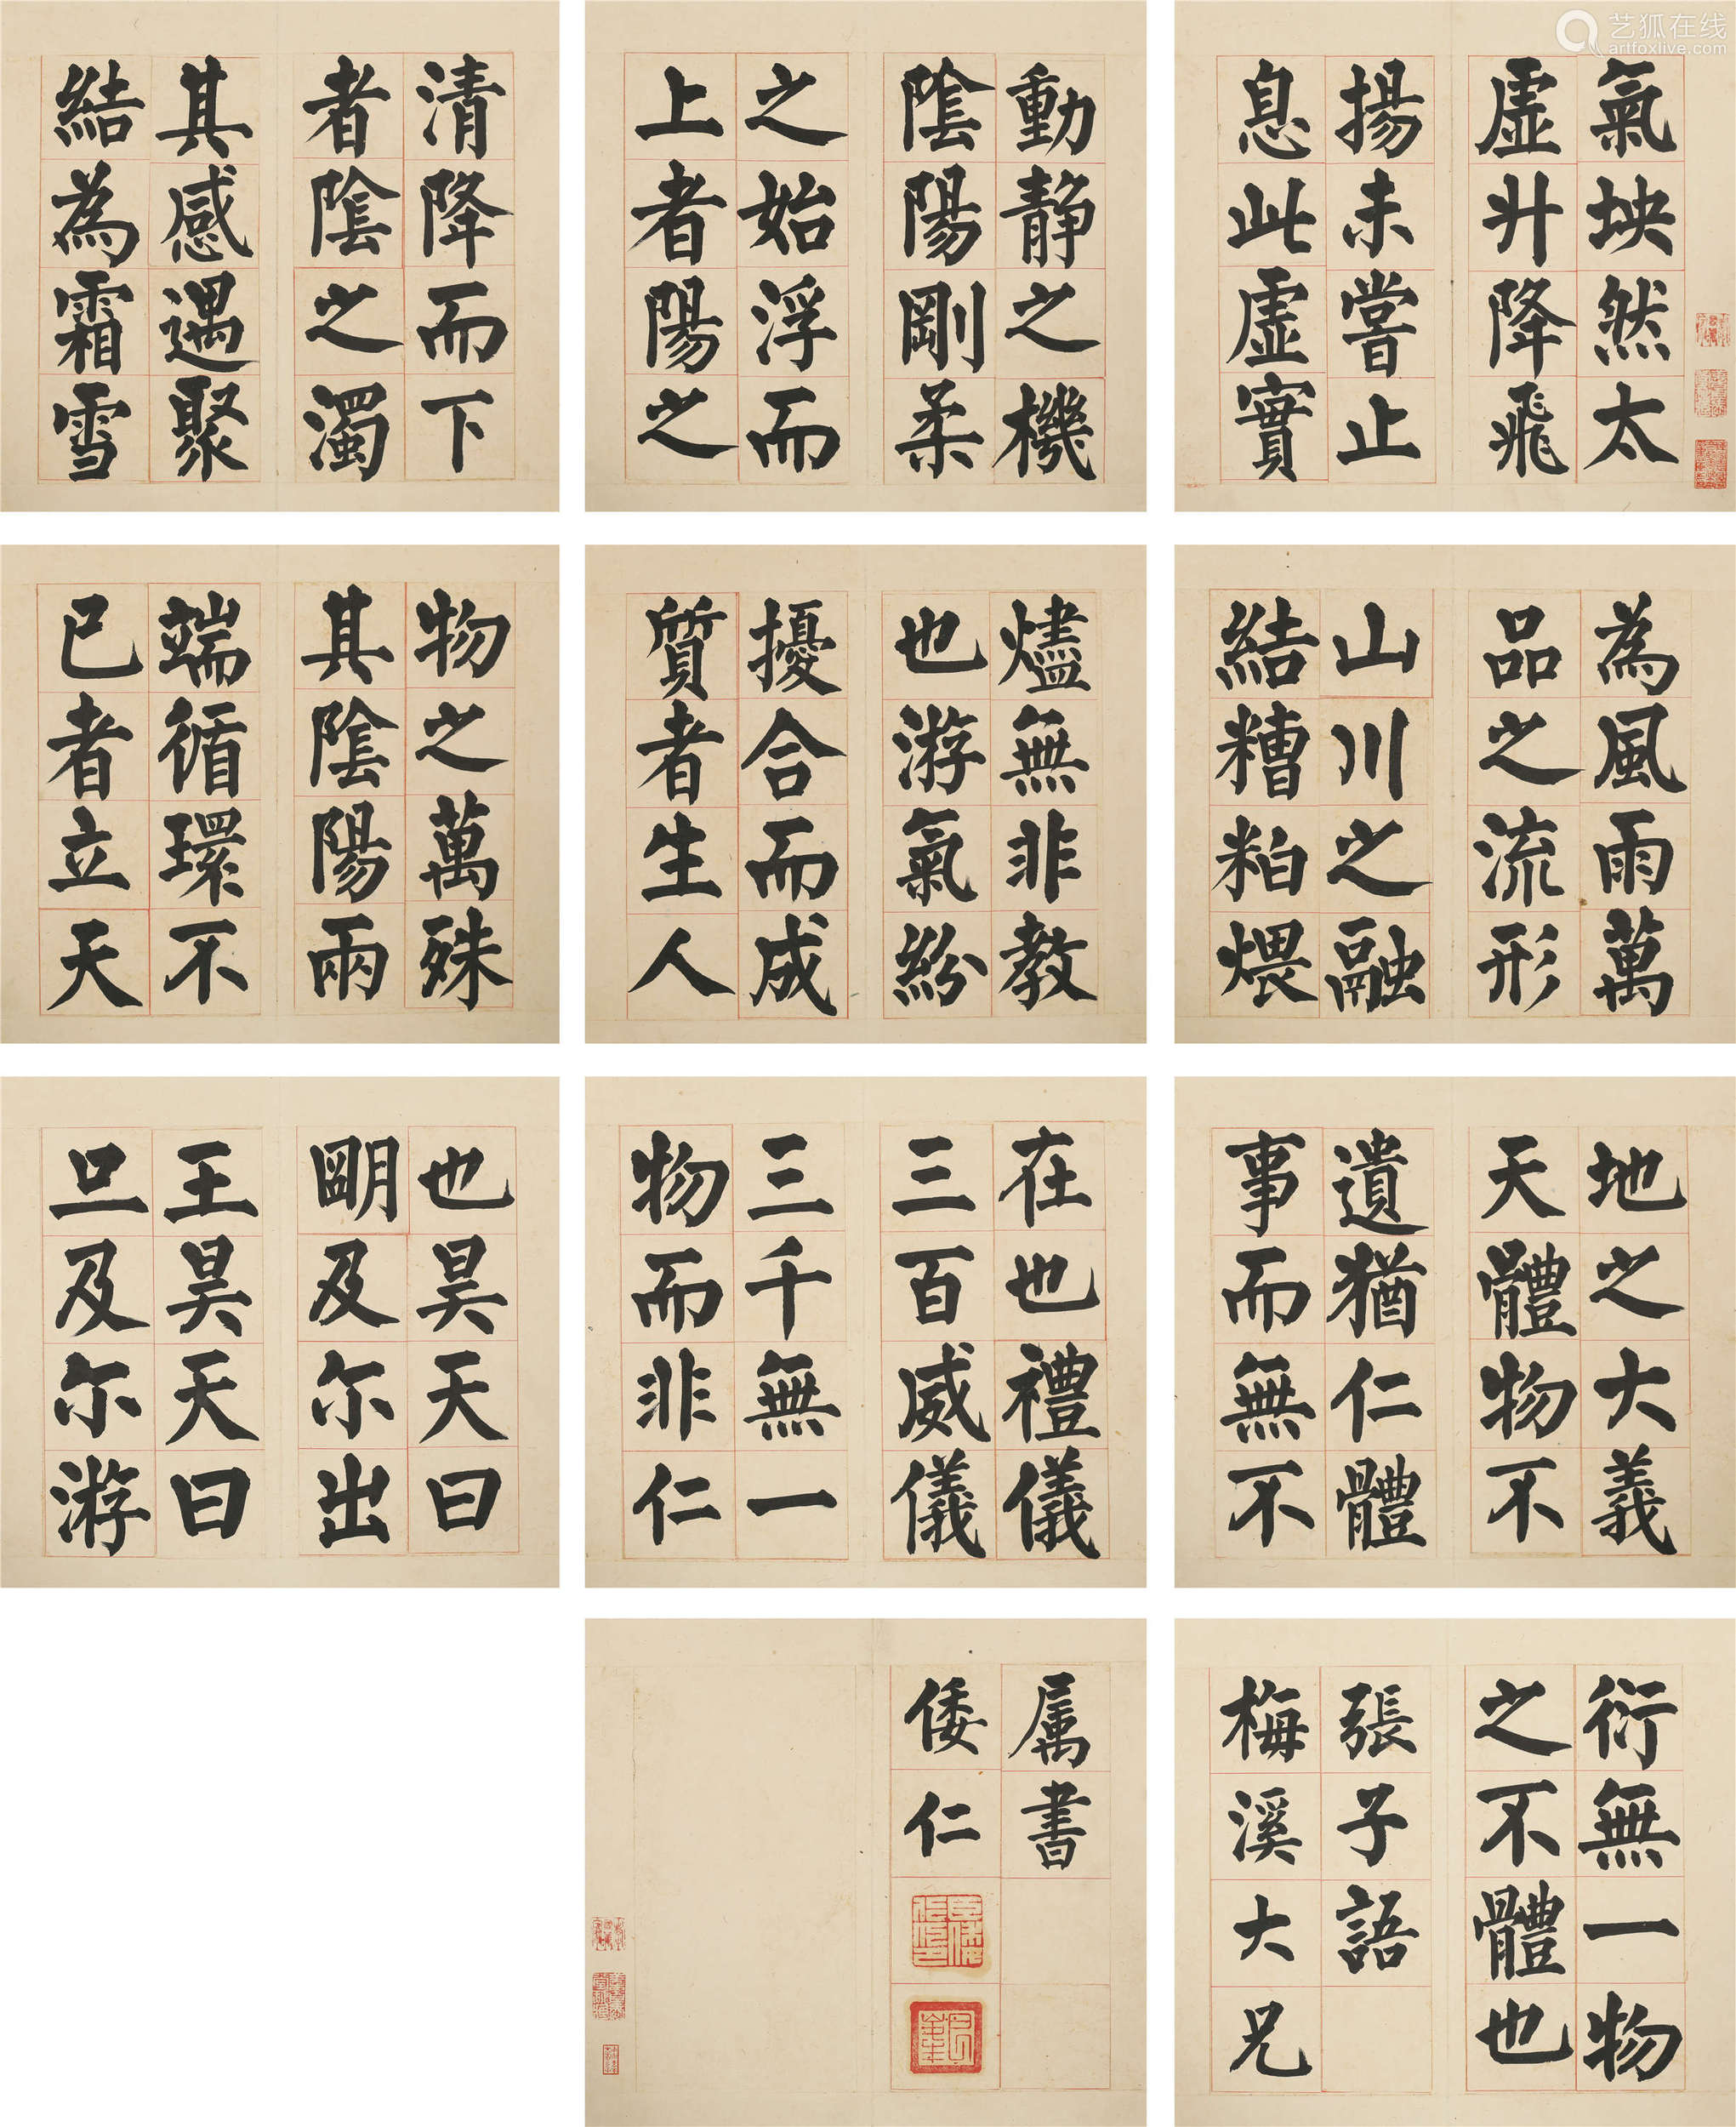 氣坱然太
虛升降飛
揚未嘗止
息此虛實
動静之機
陰陽剛柔
之始浮而
上者陽之
清降而下
者陰之濁
其感遇聚
結為霜雪
為風雨萬
品之流形
山川之融
結糟粕煨
燼無非教
也游氣紛
擾合而成
質者生人
物之萬殊
其陰陽兩
端循環不
已者立天
地之大義
天體物不
遺猶仁體
事而無不
在也禮儀
三百威儀
三千無一
物而非仁
也昊天曰
明及尔出
王昊天曰
旦及尔游
衍無一物
之不體也
張子語
梅溪大兄
属書
倭仁
艺狐在线
artfoxlive.com